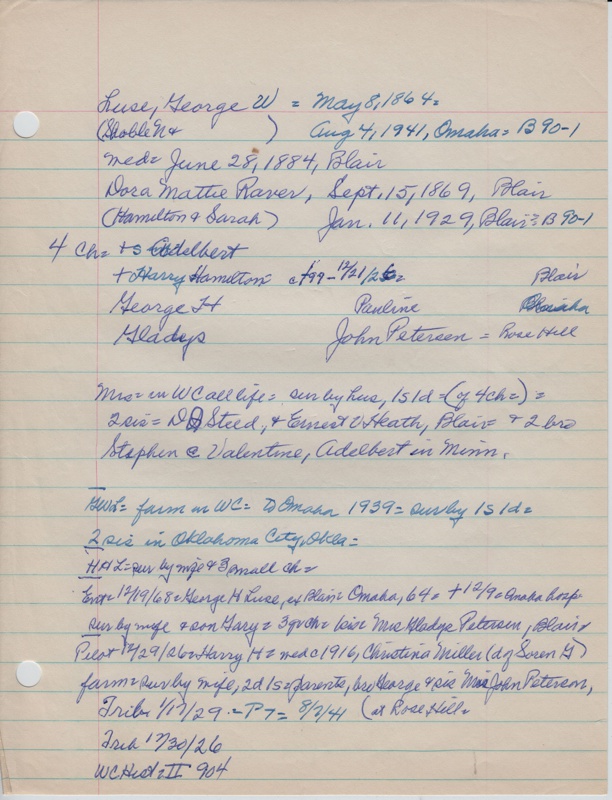 Luse, George W = May 8, 1864 =
(Noble N & ) Aug 4, 1941, Omaha = B 90-1
med = June 28, 1884, Blair
Dora Mattie Raver, Sept. 15, 1869, Blair
(Hamilton & Sarah) Jan. 11, 1929, Blair = B 90-1
4 Ch = + s Adelbert
+ Harry Hamilton c 1899 - 12/21/26 = Blair
George H Pauline Omaha
Gladys John Petersen = Rose Hill
Mrs = in WC all life = sur by hus, 1s 1d = (of 4 ch =) =
2 sis = D Steed, & Ernest V Heath, Blair & 2 bro
Stephen @ Valentine, Adelbert in Minn.
GWL = farm in WC = to Omaha 1939 = sur by 1s 1d =
2 sis in Oklahoma City, Okla =
HHL = sur by wife & 3 small ch =
Ent = 12/19/68 = George H Luse, ex Blair = Omaha, 64 = + 12/9 = Omaha hosp =
sur by wife & son Gary = 3 gr ch = 1 sis = Mrs Gladys Petersen, Blair
Pilot 12/29/26 = Harry H = med c 1916, Christina Miller (d of Soren G)
farm = sur by wife, 2d 1s = parents, bro George & sis Mrs John Peterson,
Trib = 1/17/29 = P7 = 8/7/41 (at Rose Hill =
Trib 12/30/26
WC Hist = II 904